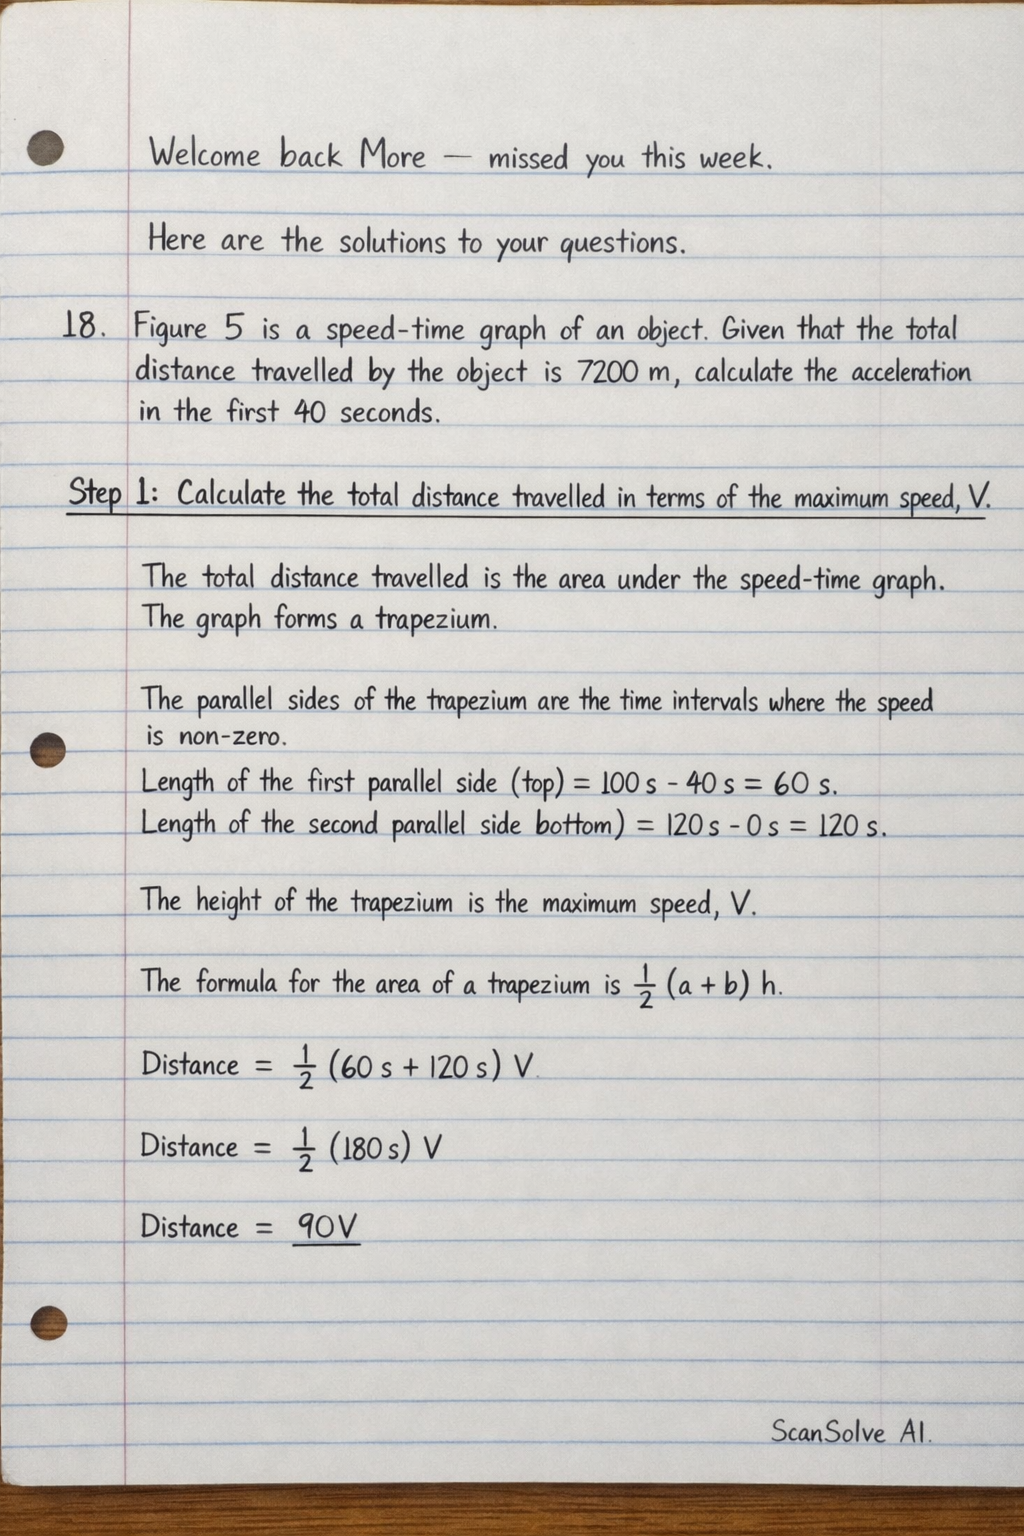 Welcome back More — missed you this week.
Here are the solutions to your questions.
18. Figure 5 is a speed-time graph of an object. Given that the total
distance travelled by the object is 7200 m, calculate the acceleration
in the first 40 seconds.
Step 1: Calculate the total distance travelled in terms of the maximum speed, V.
The total distance travelled is the area under the speed-time graph.
The graph forms a trapezium.
The parallel sides of the trapezium are the time intervals where the speed
is non-zero.
Length of the first parallel side (top) = 100 s - 40 s = 60 s.
Length of the second parallel side bottom) = 120 s - 0 s = 120 s.
The height of the trapezium is the maximum speed, V.
The formula for the area of a trapezium is 1/2 (a + b) h.
Distance = 1/2 (60 s + 120 s) V.
Distance = 1/2 (180 s) V
Distance = 90V
ScanSolve AI.